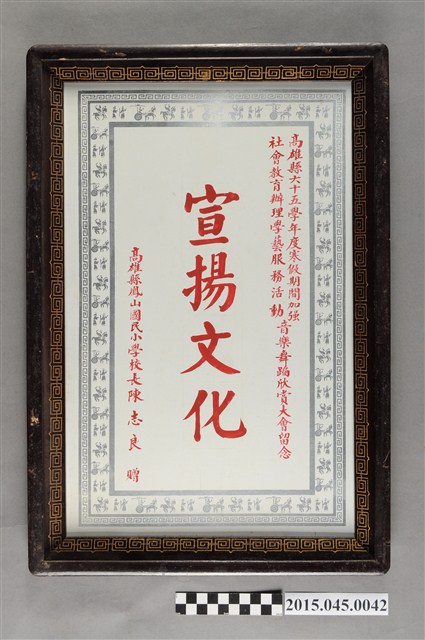 高雄縣六十五學年度寒假期間加强
社會教育辦理學藝服務活動音樂舞蹈欣賞大會留念
宣揚文化
高雄縣鳳山國民小學校長陳志良 贈
2015.045.0042